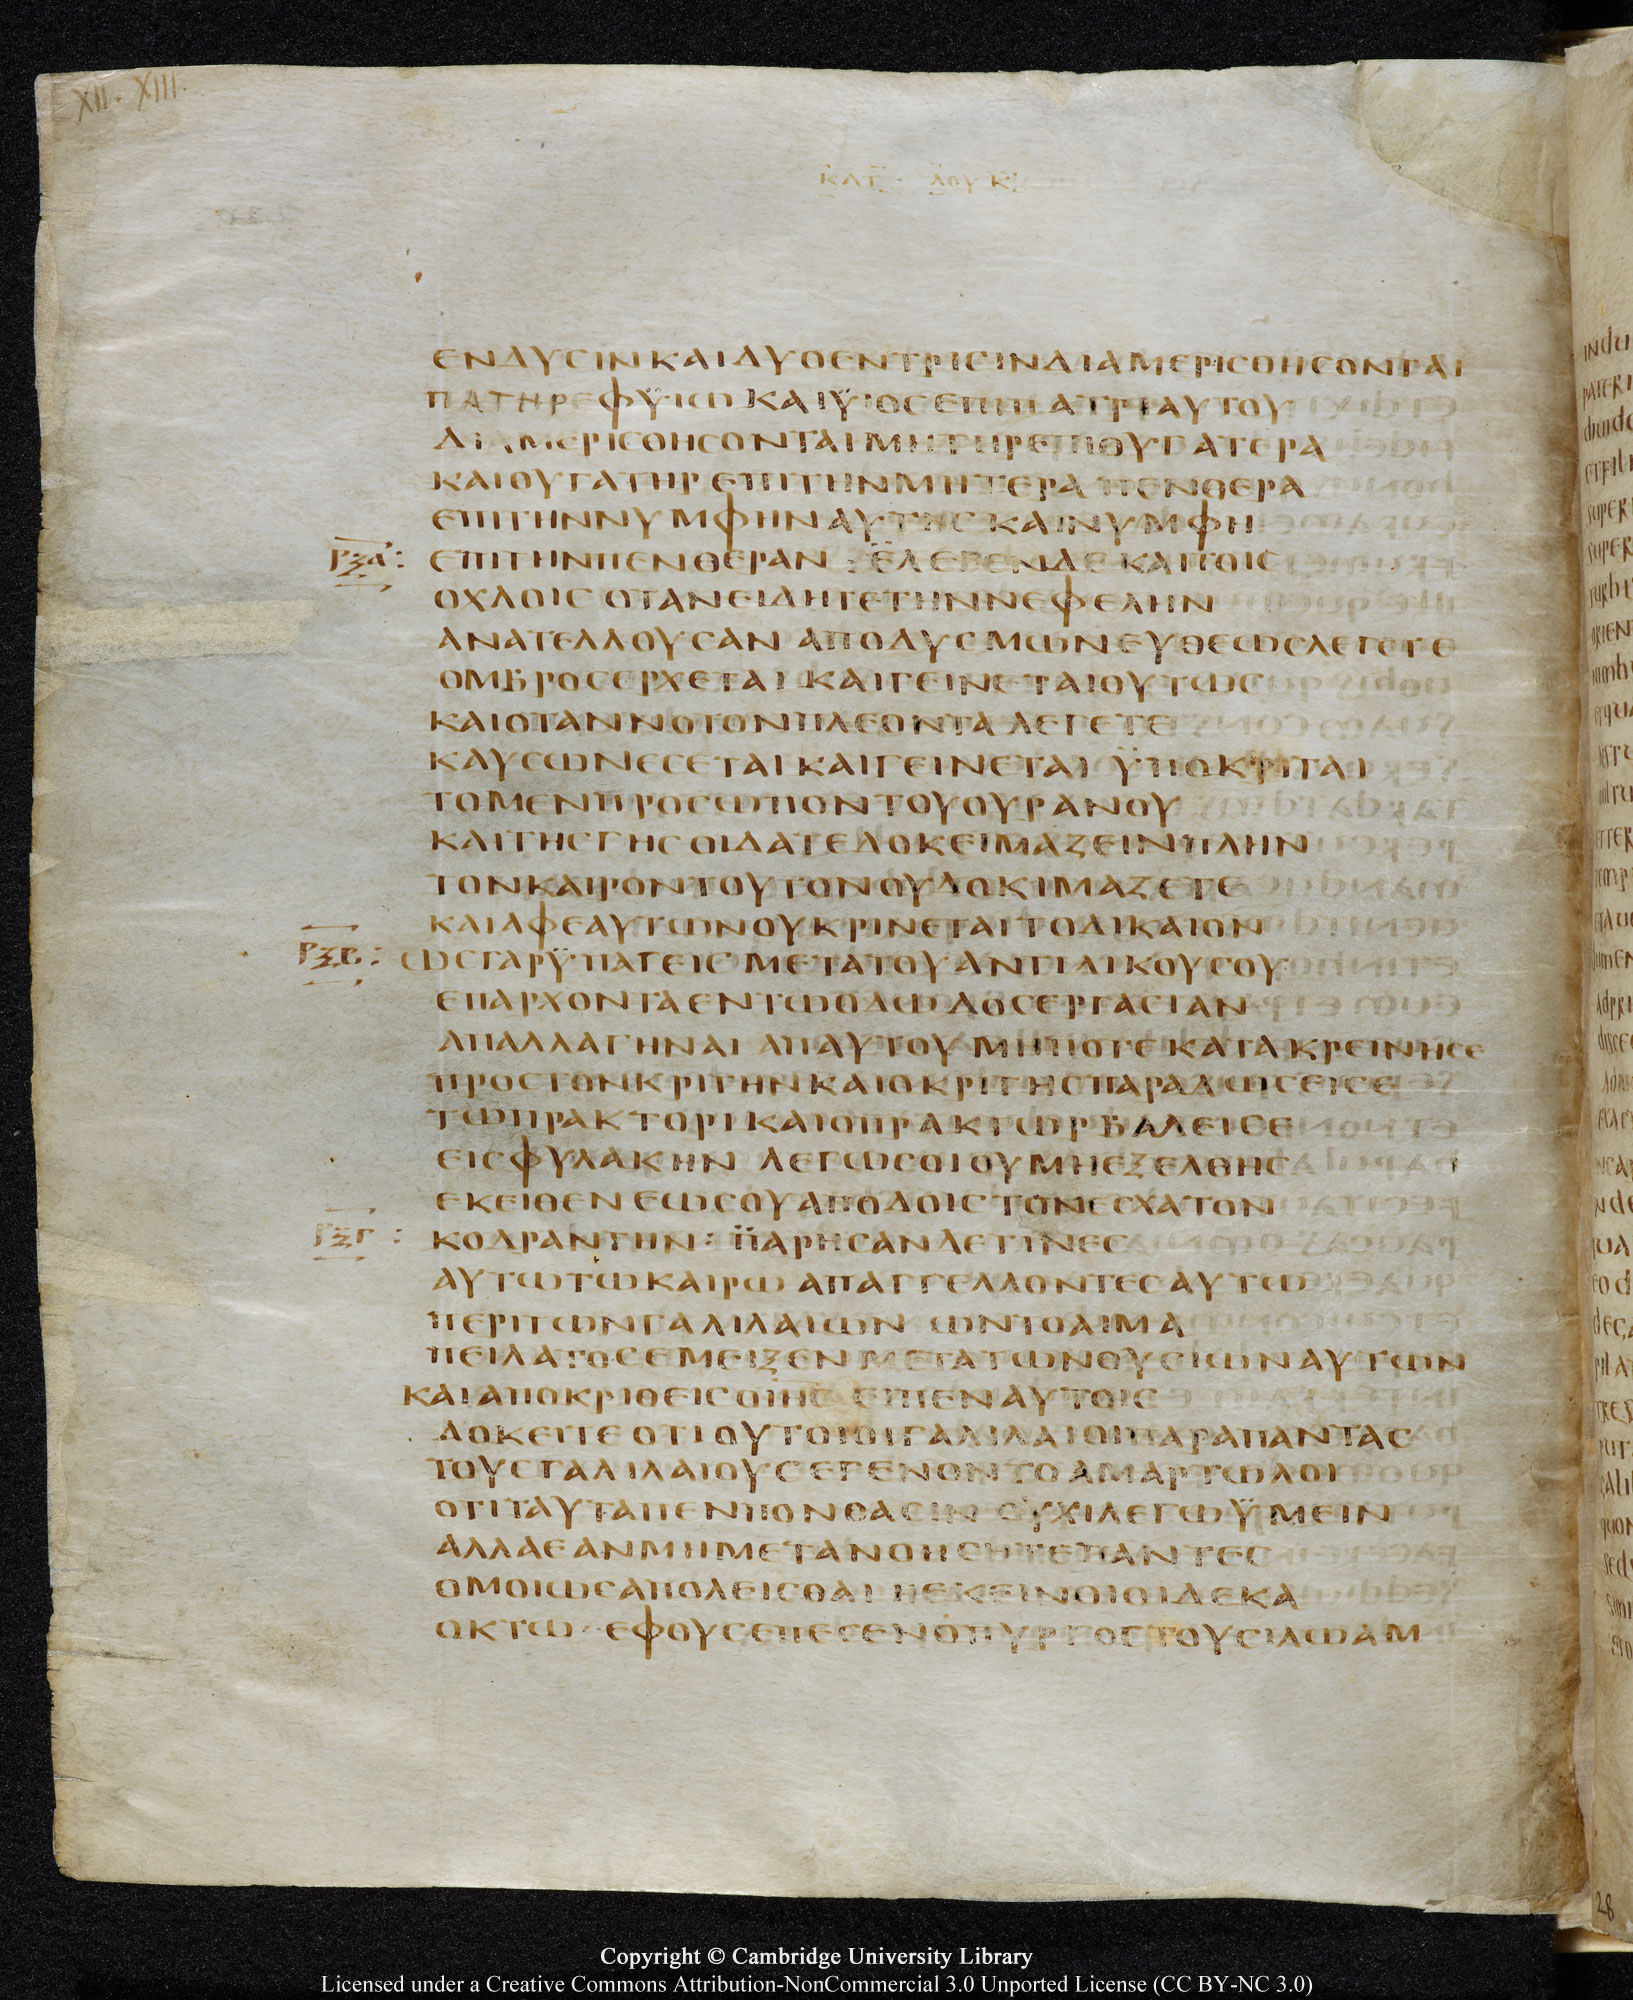 XII. XIII.
ΚΑΤ· ΛΟΥΚ
ΕΝΔΥCΙΝΚΑΙΔΥΟΕΝΤΡΙCΙΝΔΙΑΜΕΡΙCΘΗCΟΝΤΑΙ
ΠΑΤΗΡΕΦΫΙΩΚΑΙΫΙΟCΕΠΙΠΑΤΡΙΑΥΤΟΥ
ΔΙΑΜΕΡΙCΘΗCΟΝΤΑΙΜΗΤΗΡΕΠΙΘΥΓΑΤΕΡΑ
ΚΑΙΘΥΓΑΤΗΡΕΠΙΤΗΝΜΗΤΕΡΑΠΕΝΘΕΡΑ
ΕΠΙΤΗΝΝΥΜΦΗΝΑΥΤΗCΚΑΙΝΥΜΦΗ
ΡΞΑ: ΕΠΙΤΗΝΠΕΝΘΕΡΑΝ : ΕΛΕΓΕΝΔΕΚΑΙΤΟΙC
ΟΧΛΟΙC ΟΤΑΝΕΙΔΗΤΕΤΗΝΝΕΦΕΛΗΝ
ΑΝΑΤΕΛΛΟΥCΑΝ ΑΠΟΔΥCΜΩΝΕΥΘΕΩCΛΕΓΕΤΕ
ΟΜΒΡΟCΕΡΧΕΤΑΙ ΚΑΙΓΕΙΝΕΤΑΙΟΥΤΩC
ΚΑΙΟΤΑΝΝΟΤΟΝΠΛΕΟΝΤΑ ΛΕΓΕΤΕ
ΚΑΥCΩΝΕCΕΤΑΙ ΚΑΙΓΕΙΝΕΤΑΙ ΫΠΟΚΡΙΤΑΙ
ΤΟΜΕΝΠΡΟCΩΠΟΝΤΟΥΟΥΡΑΝΟΥ
ΚΑΙΤΗCΓΗCΟΙΔΑΤΕΔΟΚΕΙΜΑΖΕΙΝΠΛΗΝ
ΤΟΝΚΑΙΡΟΝΤΟΥΤΟΝΟΥΔΟΚΙΜΑΖΕΤΕ
ΚΑΙΑΦΕΑΥΤΩΝΟΥΚΡΙΝΕΤΑΙΤΟΔΙΚΑΙΟΝ
ΡΞΒ: ΩCΓΑΡΫΠΑΓΕΙCΜΕΤΑΤΟΥΑΝΤΙΔΙΚΟΥCΟΥ
ΕΠΑΡΧΟΝΤΑΕΝΤΩΟΔΩΔΟCΕΡΓΑCΙΑΝ
ΑΠΑΛΛΑΓΗΝΑΙ ΑΠΑΥΤΟΥΜΗΠΟΤΕΚΑΤΑΚΡΕΙΝΗCΕ
ΠΡΟCΤΟΝΚΡΙΤΗΝΚΑΙΟΚΡΙΤΗCΠΑΡΑΔΩCΕΙCΕ
ΤΩΠΡΑΚΤΟΡΙΚΑΙΟΠΡΑΚΤΩΡΒΑΛΕΙCΕ
ΕΙCΦΥΛΑΚΗΝ ΛΕΓΩCΟΙΟΥΜΗΕΞΕΛΘΗC
ΕΚΕΙΘΕΝΕΩCΟΥΑΠΟΔΟΙCΤΟΝΕCΧΑΤΟΝ
ΡΞΓ: ΚΟΔΡΑΝΤΗΝ: ΠΑΡΗCΑΝΔΕΤΙΝΕC
ΑΥΤΩΤΩΚΑΙΡΩ ΑΠΑΓΓΕΛΛΟΝΤΕCΑΥΤΩ
ΠΕΡΙΤΩΝΓΑΛΙΛΑΙΩΝ ΩΝΤΟΑΙΜΑ
ΠΕΙΛΑΤΟCΕΜΕΙΞΕΝΜΕΤΑΤΩΝΘΥCΙΩΝΑΥΤΩΝ
ΚΑΙΑΠΟΚΡΙΘΕΙCΟΙΗC ΕΙΠΕΝΑΥΤΟΙC
ΔΟΚΕΙΤΕΟΤΙΟΥΤΟΙΟΙΓΑΛΙΛΑΙΟΙΠΑΡΑΠΑΝΤΑC
ΤΟΥCΓΑΛΙΛΑΙΟΥCΕΓΕΝΟΝΤΟΑΜΑΡΤΩΛΟΙ
ΟΤΙΤΑΥΤΑΠΕΝΠΟΝΘΑCΙΝ ΟΥΧΙΛΕΓΩΫΜΕΙΝ
ΑΛΛΑΕΑΝΜΗΜΕΤΑΝΟΗCΗΤΕΠΑΝΤΕC
ΟΜΟΙΩCΑΠΟΛΕΙCΘΑΙ ΗΕΚΕΙΝΟΙΟΙΔΕΚΑ
ΟΚΤΩ·ΕΦΟΥCΕΠΕCΕΝΟΠΥΡΓΟCΤΟΥCΙΛΩΑΜ
28
Copyright © Cambridge University Library
Licensed under a Creative Commons Attribution-NonCommercial 3.0 Unported License (CC BY-NC 3.0)